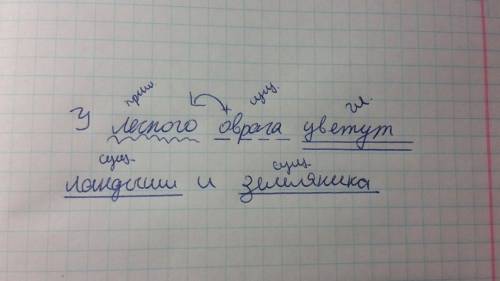 прил. сущ. гл.
У лесного оврага цветут
сущ. сущ.
ландыши и земляника